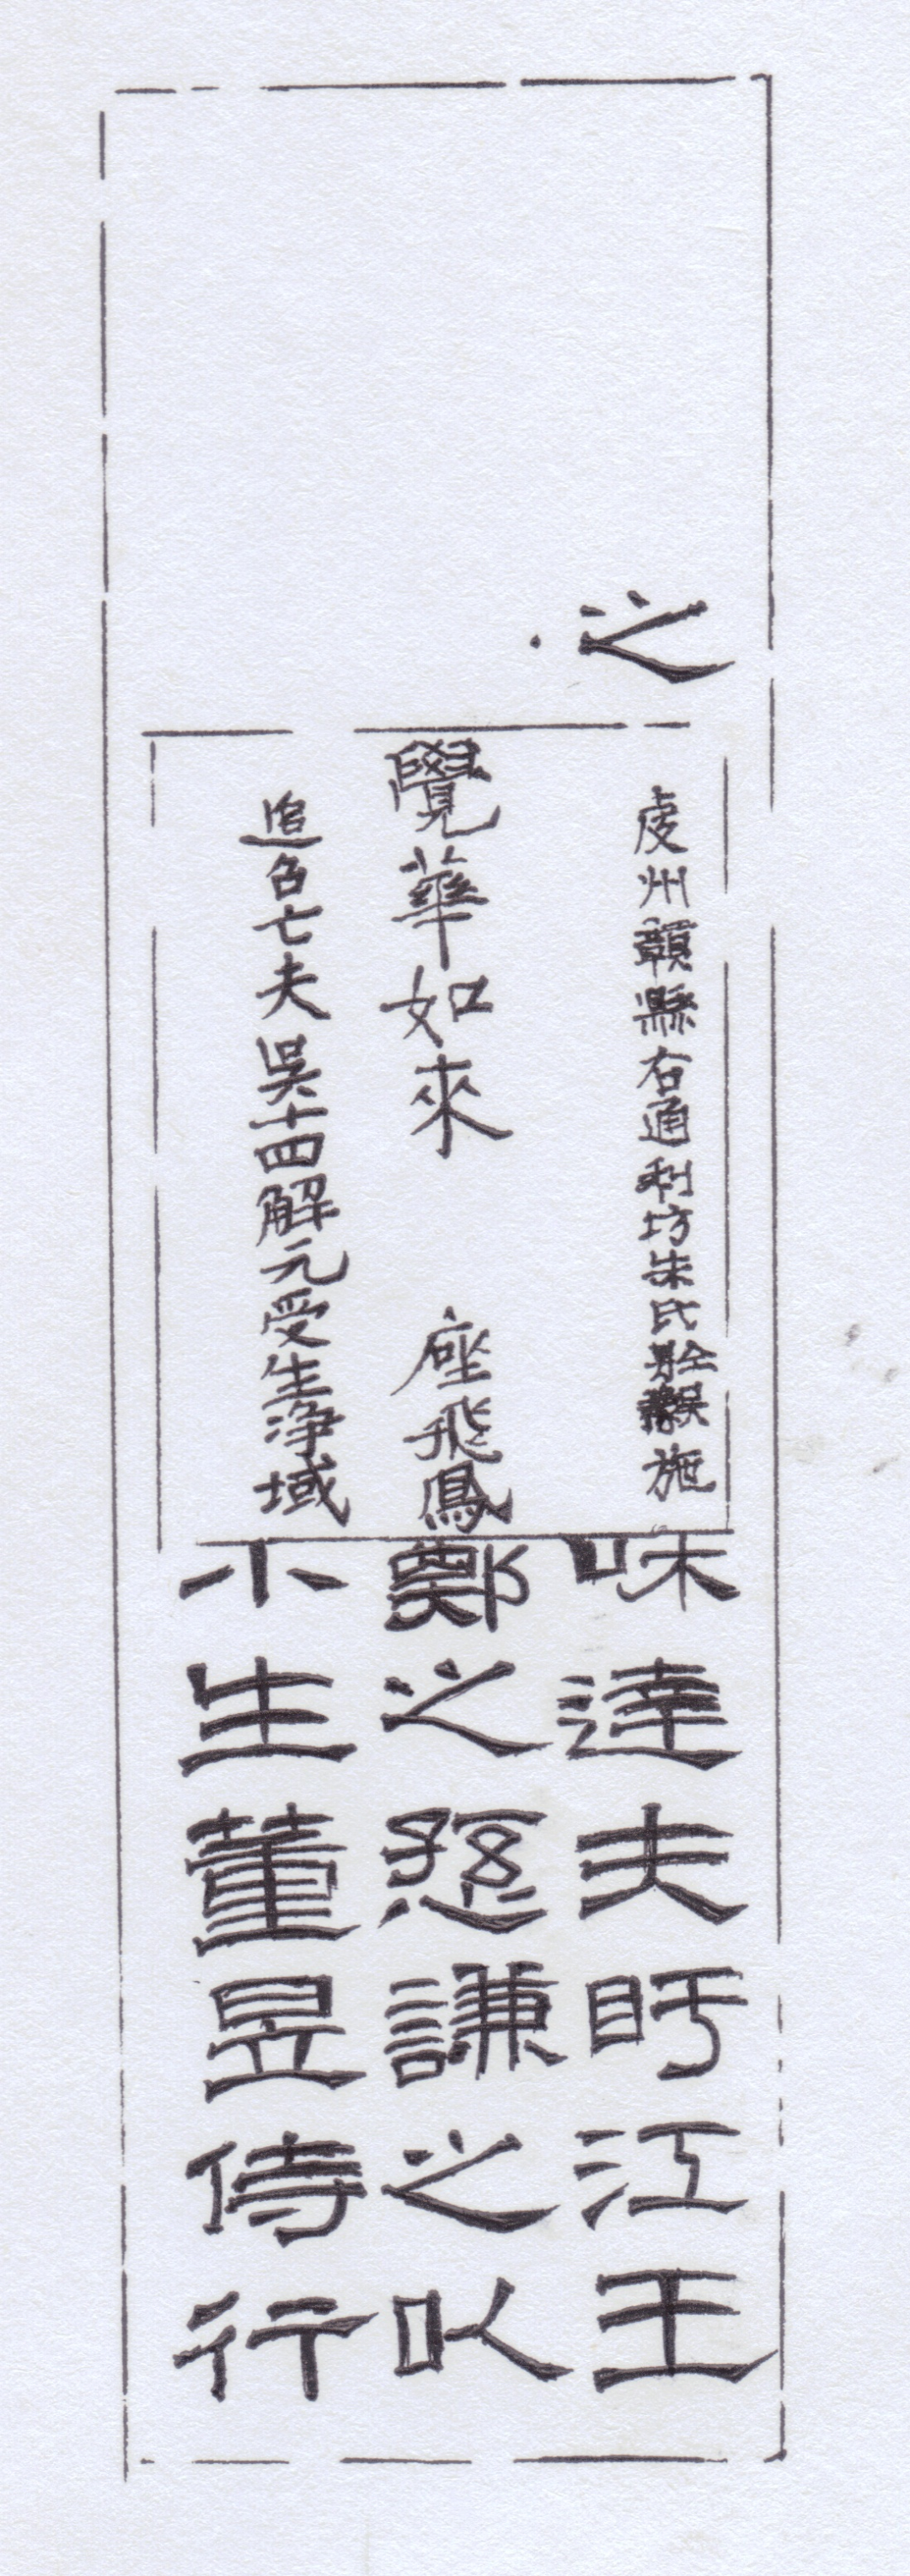 之
虔州贛縣右通利坊朱氏施
覺華如來 座飛鳳
追召亡夫吳十四解元受生淨域
達夫盱江王
鄭之愻謙之以
小生董昱侍行